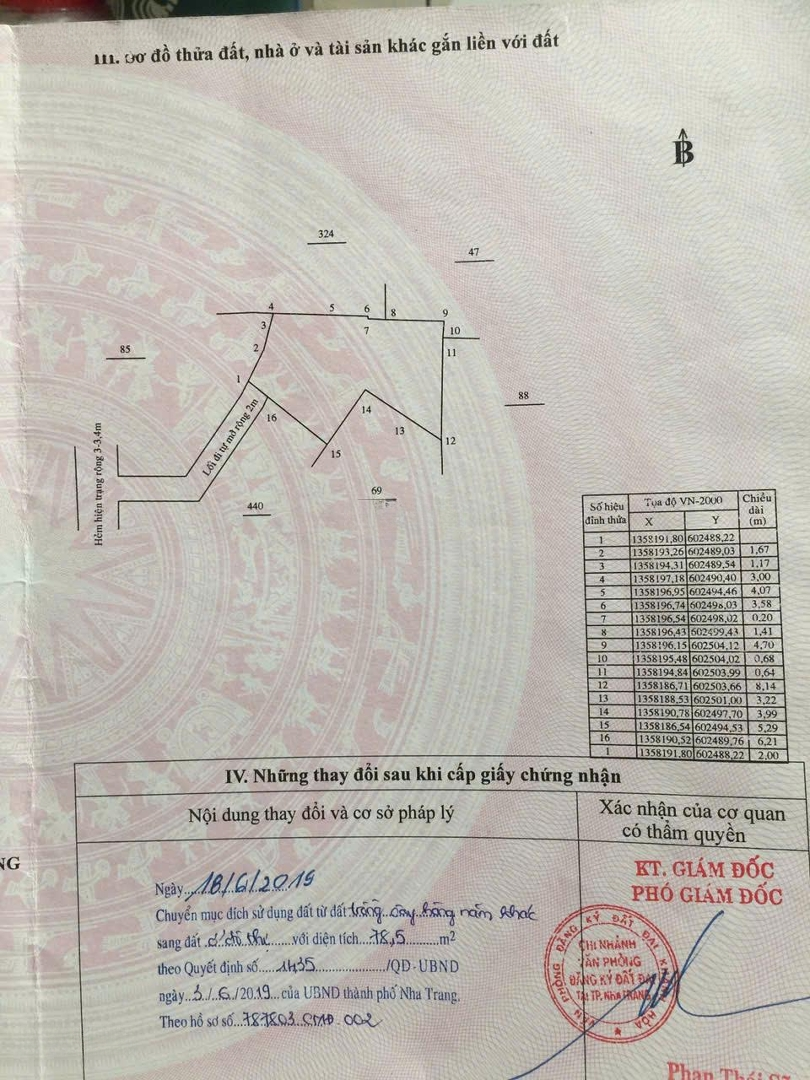 III. Sơ đồ thửa đất, nhà ở và tài sản khác gắn liền với đất
B
324
47
4
5
6
8
9
3
7
10
2
11
85
1
88
14
16
13
12
15
Lối đi tự mở rộng 2m
Hẻm hiện trạng rộng 3-3,4m
69
440
Số hiệu đỉnh thửa Tọa độ VN-2000 Chiều dài (m)
X Y
1 1358191,80 602488,22
2 1358193,26 602489,03 1,67
3 1358194,31 602489,54 1,17
4 1358197,18 602490,40 3,00
5 1358196,95 602494,46 4,07
6 1358196,74 602498,03 3,58
7 1358196,54 602498,02 0,20
8 1358196,43 602499,43 1,41
9 1358196,15 602504,12 4,70
10 1358195,48 602504,02 0,68
11 1358194,84 602503,99 0,64
12 1358186,71 602503,66 8,14
13 1358188,53 602501,00 3,22
14 1358190,78 602497,70 3,99
15 1358186,54 602494,53 5,29
16 1358190,52 602489,76 6,21
1 1358191,80 602488,22 2,00
IV. Những thay đổi sau khi cấp giấy chứng nhận
Nội dung thay đổi và cơ sở pháp lý
Xác nhận của cơ quan
có thẩm quyền
NG
KT. GIÁM ĐỐC
PHÓ GIÁM ĐỐC
Ngày 18/6/2019
Chuyển mục đích sử dụng đất từ đất trồng cây hằng năm khác
sang đất ở đô thị với diện tích 78,5 m2
theo Quyết định số 1435 /QĐ-UBND
ngày 3/6/2019 của UBND thành phố Nha Trang.
Theo hồ sơ số 787803.CMĐ.002
VĂN PHÒNG ĐĂNG KÝ ĐẤT ĐAI KHÁNH HÒA
CHI NHÁNH
VĂN PHÒNG
ĐĂNG KÝ ĐẤT ĐAI
TẠI TP. NHA TRANG
Phan Thái